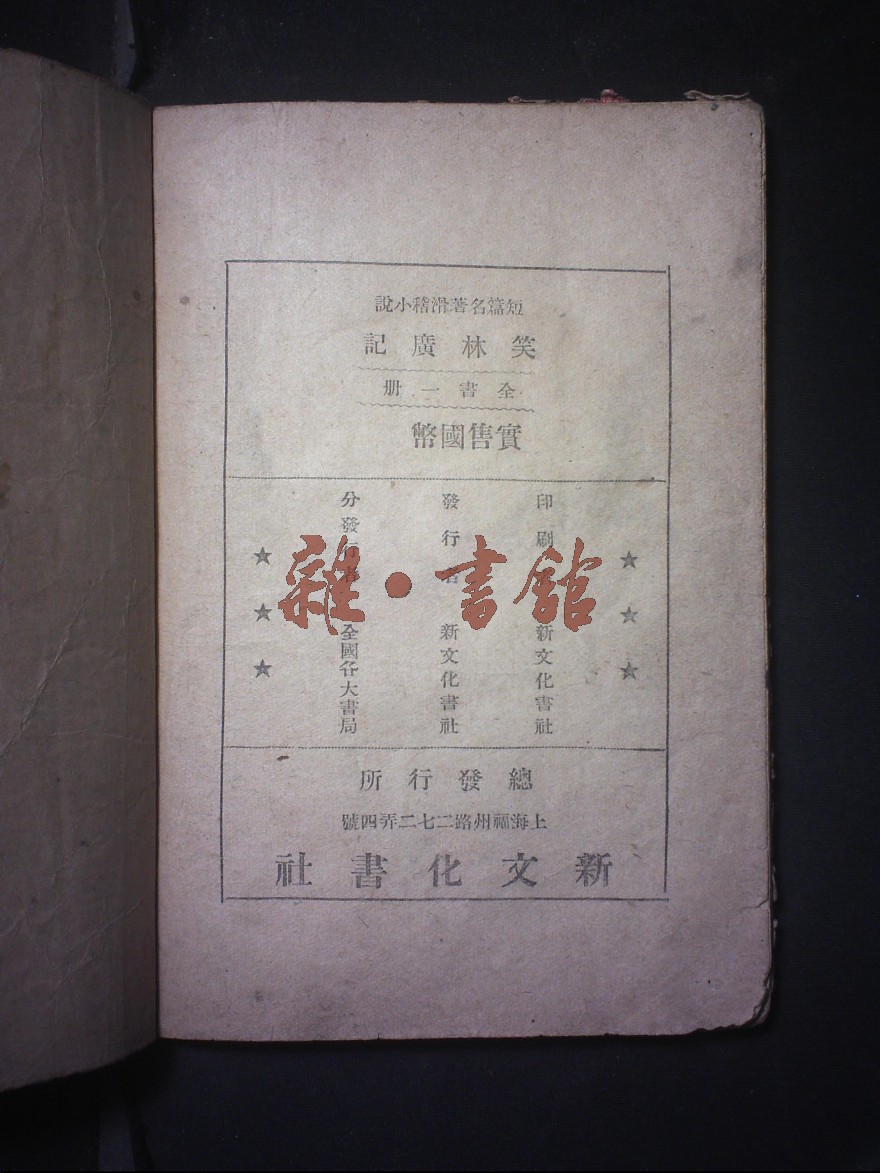 短篇名著滑稽小說
笑林廣記
全書一册
實售國幣
印刷 新文化書社
發行者 新文化書社
分發行者 全國各大書局
雜·書館
總發行所
上海福州路二七二弄四號
新文化書社